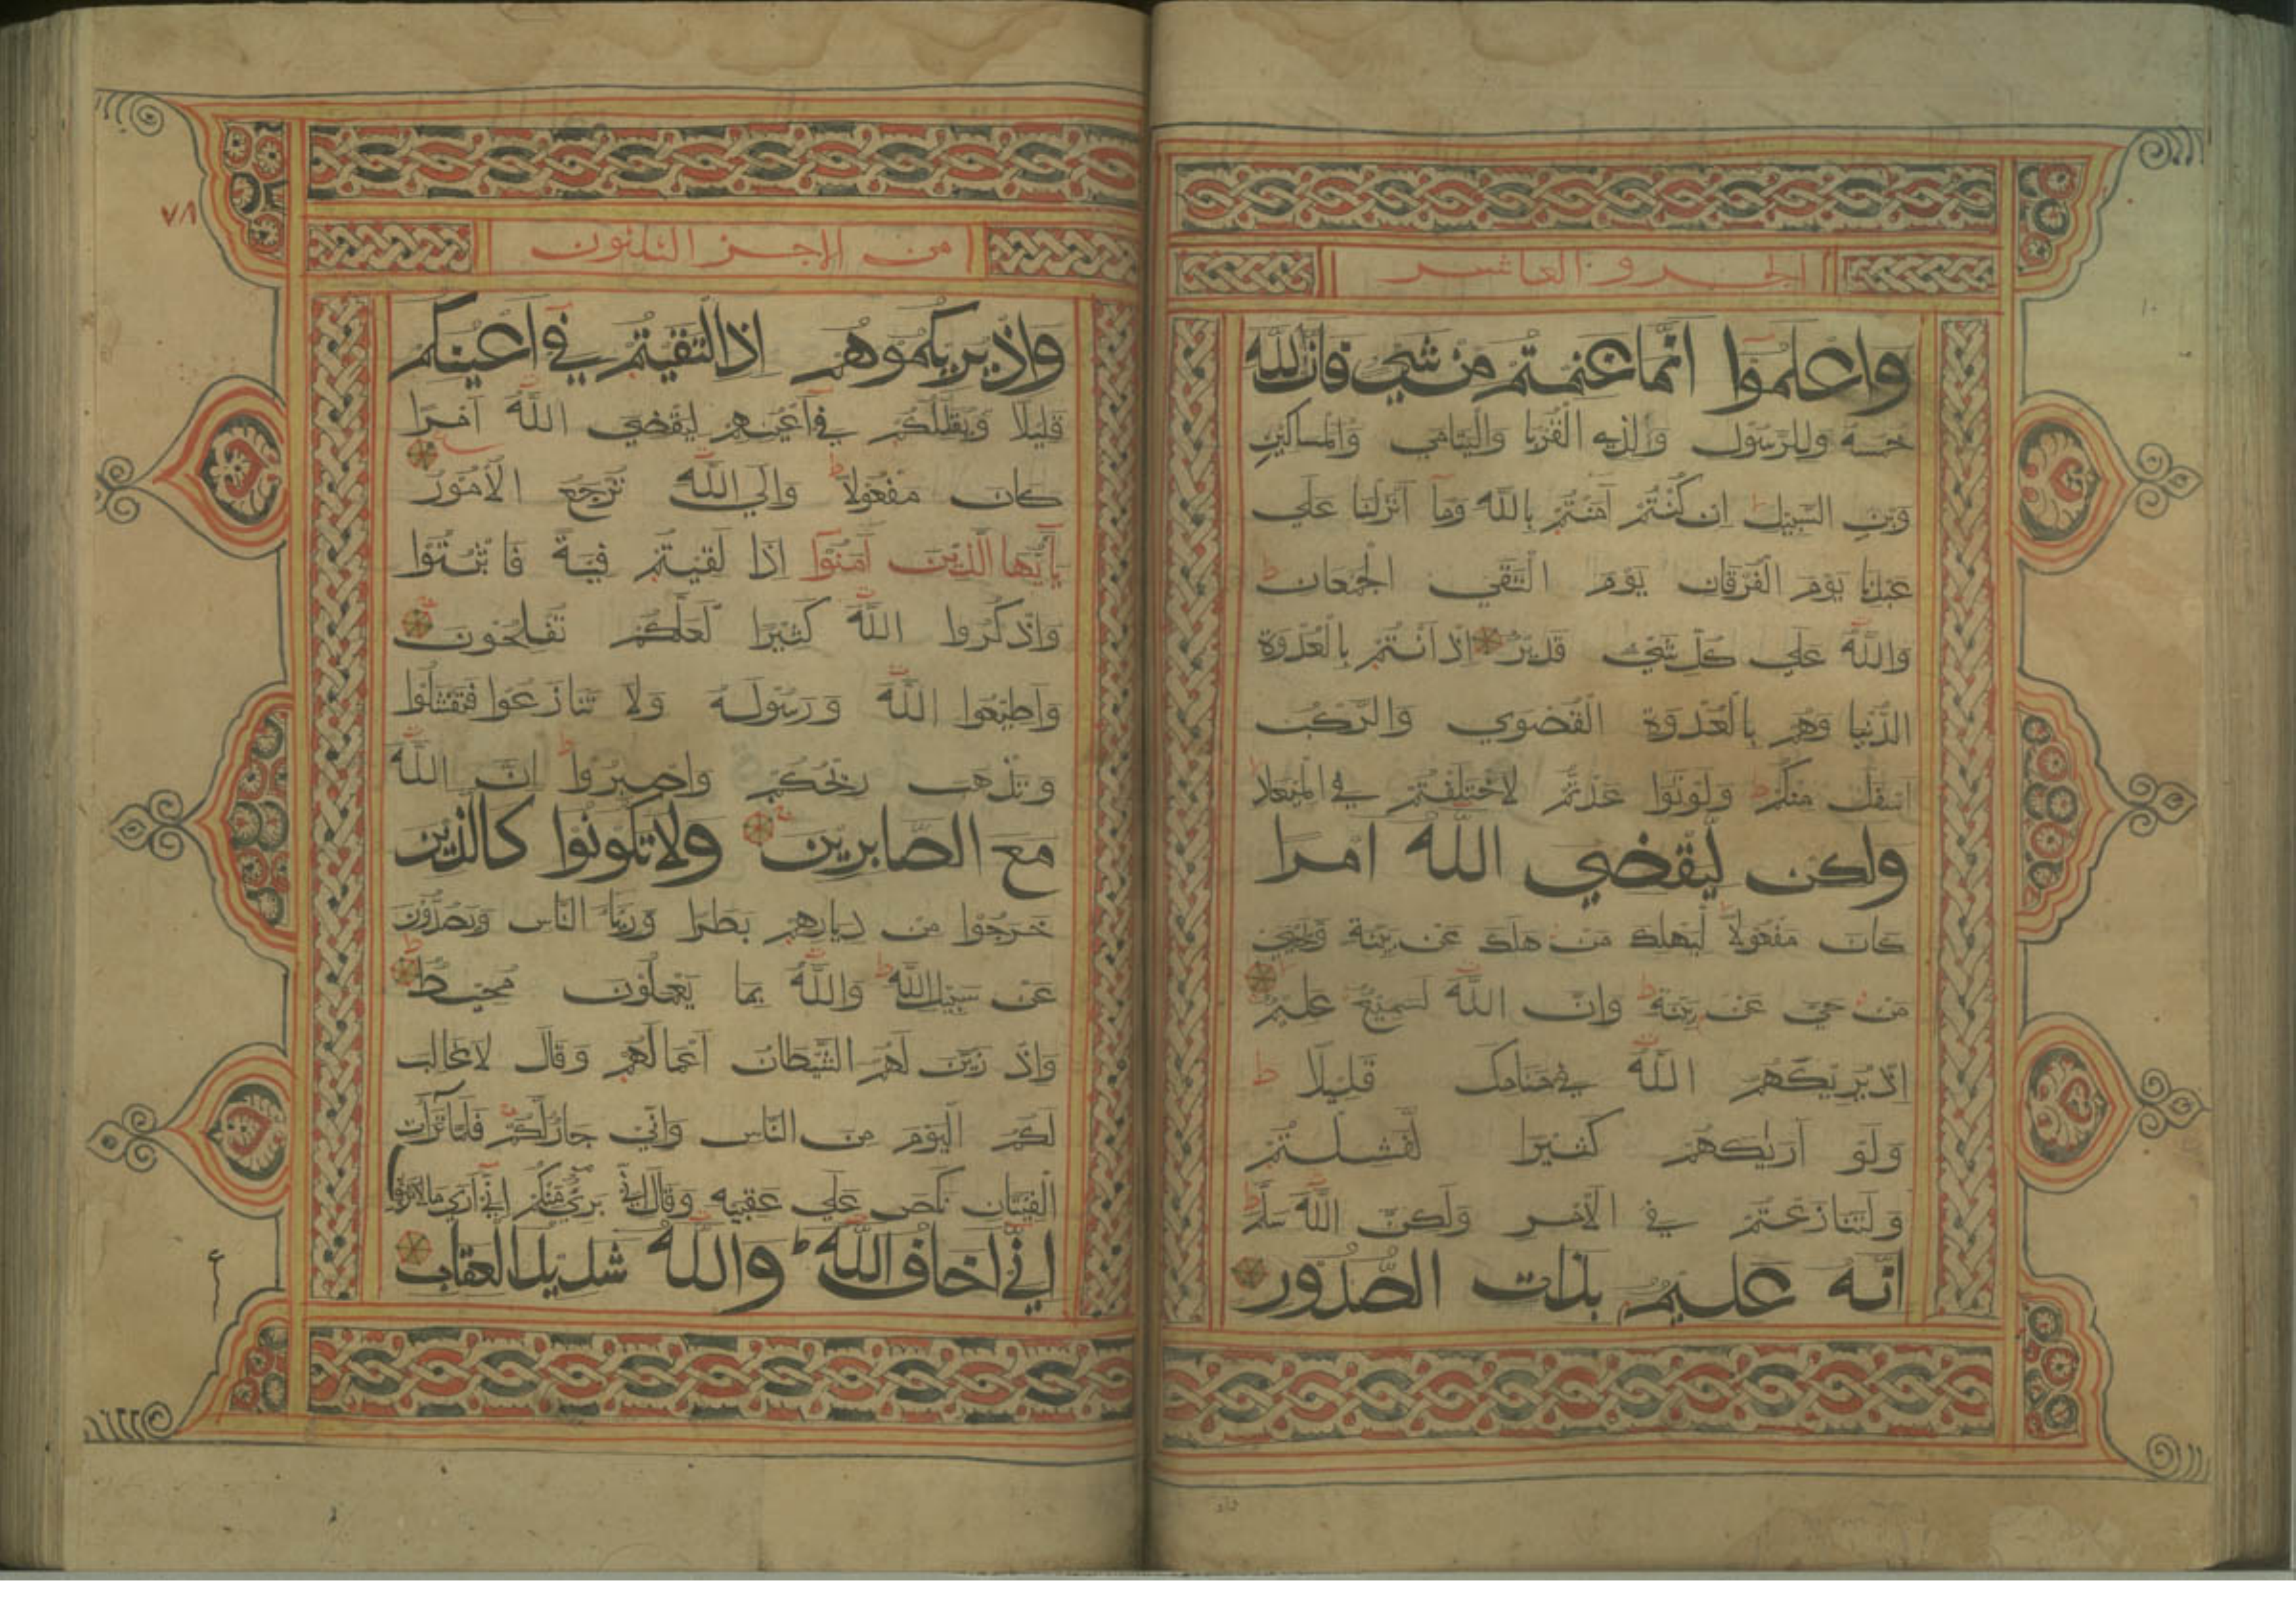 الجزو العاشر
واعلموا انما غنمتم من شي فان لله
خمسه وللرسول والذي القربا واليتامي والمساكين
وبن السبيل ان كنتم آمنتم بالله وما انزلنا علي
عبدنا يوم الفرقان يوم التقي الجمعان ط
والله علي كل شي قدير اذ انتم بالعدوة
الدنيا وهم بالعدوة القصوي والركب
اسفل منكم ط ولو توا عدتم لاختلفتم في الميعاد
ولكن ليقضي الله امرا
كان مفعولا ليهلك من هلك عن بينة ويحيي
من حي عن بينة ط وان الله لسميع عليم
اذ يريكهم الله في منامك قليلا ط
ولو اريكهم كثيرا لفشلتم
ولتنازعتم في الامر ولكن الله سلم ط
انه عليم بذات الصدور
٧٨
من الاجز الثلثون
واذ يريكموهم اذا لتقيتم في اعينكم
قليلا ويقللكم في اعينهم ليقضي الله امرا
كان مفعولا ط والي الله ترجع الامور
يايها الذين آمنوا اذا لقيتم فية فا ثبتوا
واذكروا الله كثيرا لعلكم تفلحون
واطيعوا الله ورسوله ولا تنازعوا فتفشلوا
وتذهب ريحكم واصبروا ط ان الله
مع الصابرين ولا تكونوا كالذين
خرجوا من ديارهم بطرا وريا الناس ويصدون
عن سبيل الله ط والله بما يعملون محيط
واذ زين لهم الشيطان اعمالهم وقال لا غالب
لكم اليوم من الناس واني جار لكم فلما ترآت
الفيتان نكص علي عقبيه وقال اني بري منكم اني آري ما لا ترون
اني اخاف الله ط والله شديد العقاب